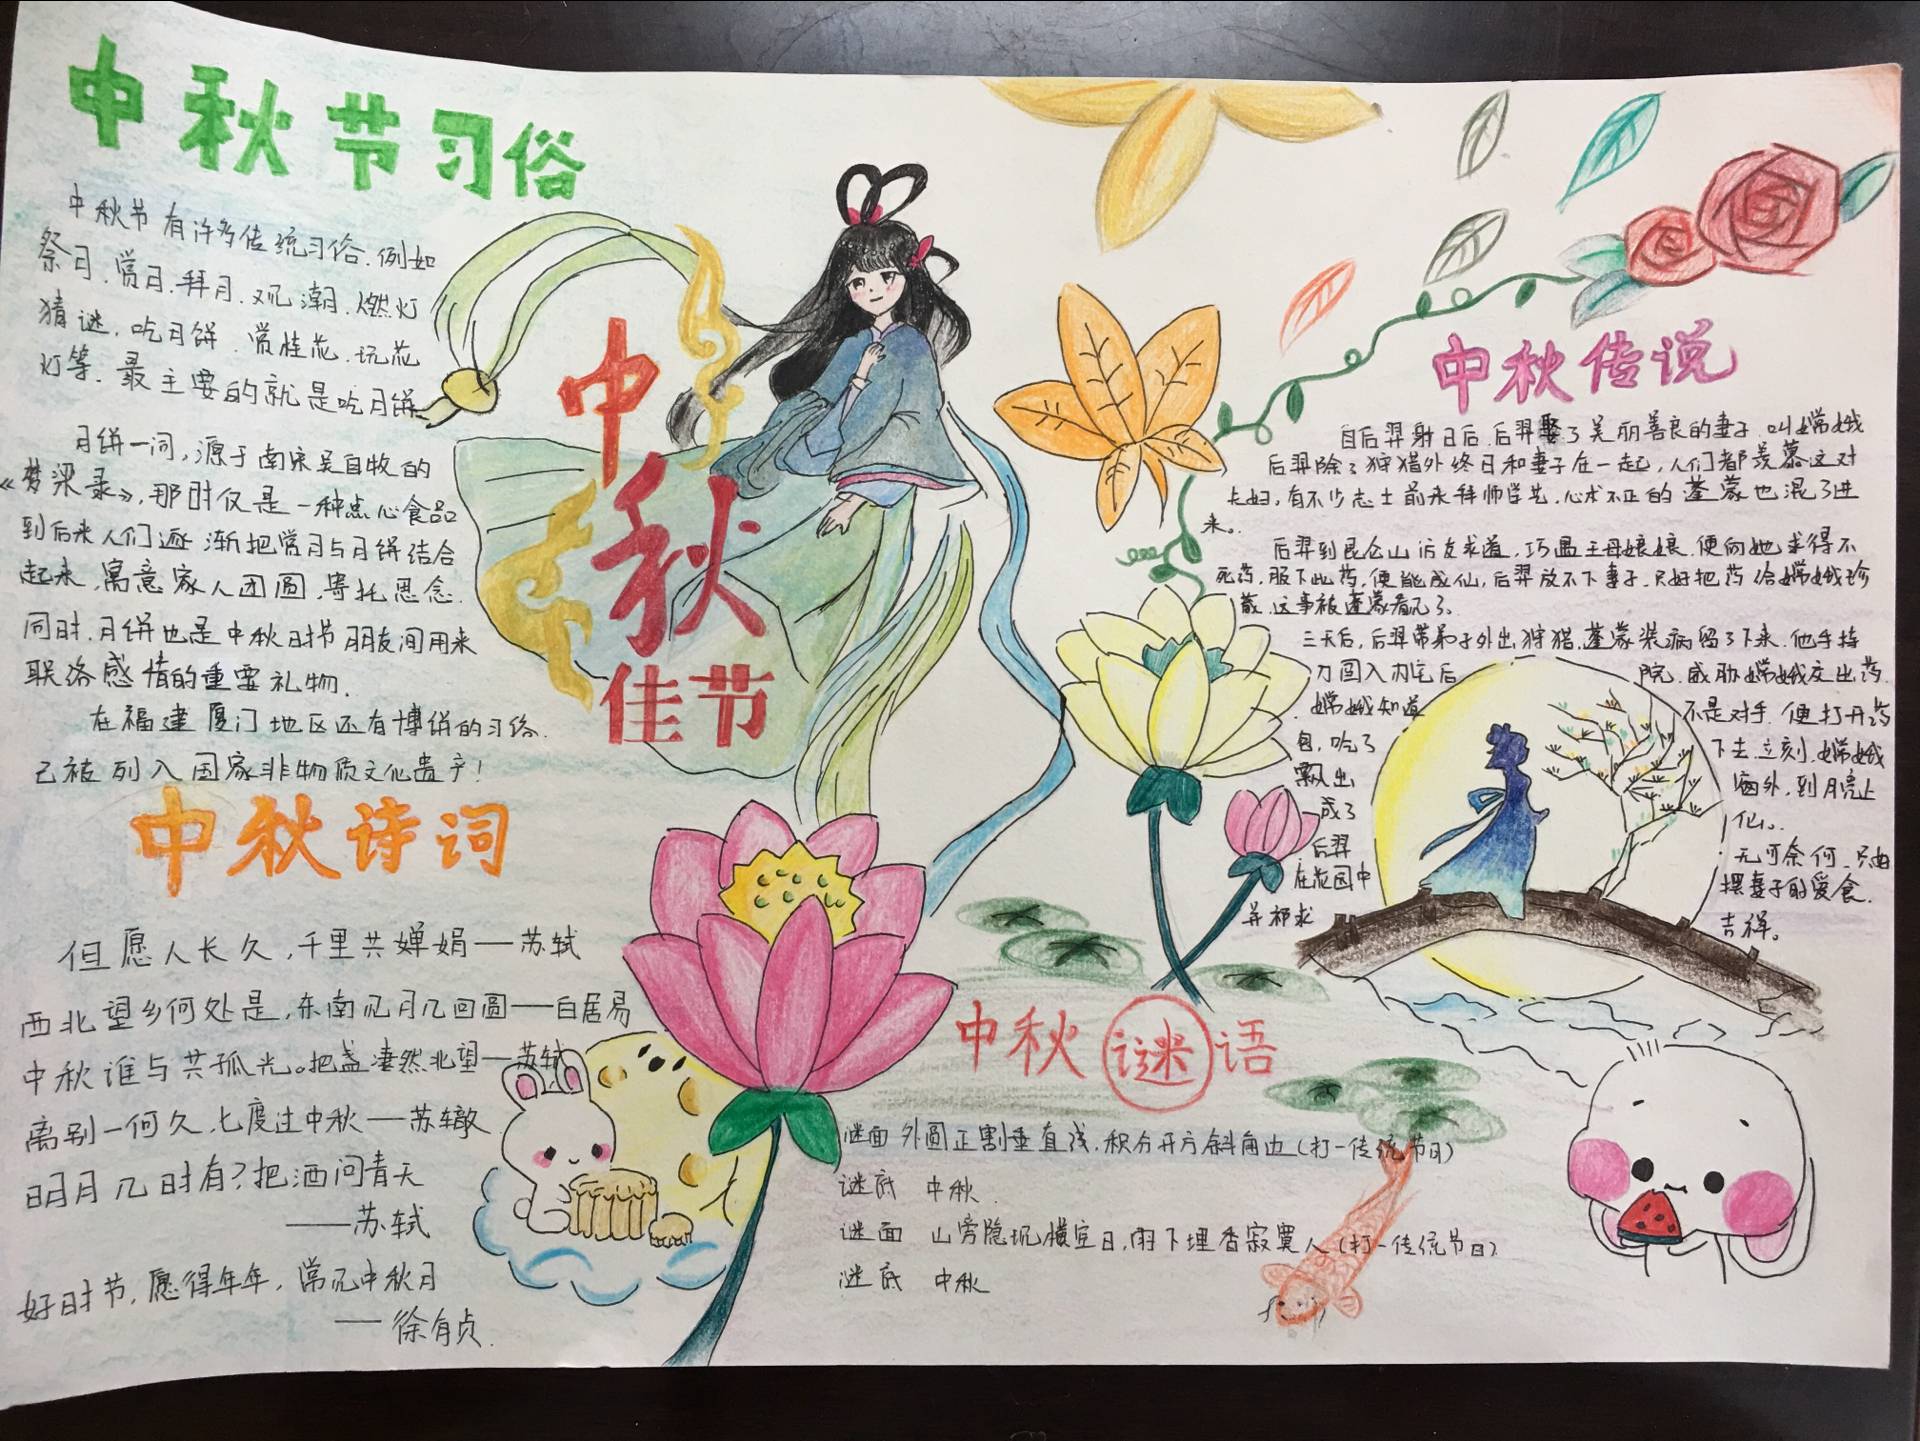 中秋节习俗
中秋节有许多传统习俗.例如
祭月.赏月.拜月.观潮.燃灯
猜谜.吃月饼.赏桂花.玩花
灯等.最主要的就是吃月饼
月饼一词,源于南宋吴自牧的
《梦梁录》,那时仅是一种点心食品
到后来人们逐渐把赏月与月饼结合
起来,寓意家人团圆,寄托思念.
同时.月饼也是中秋时节朋友间用来
联络感情的重要礼物.
在福建厦门地区还有博饼的习俗.
已被列入国家非物质文化遗产!
中秋诗词
但愿人长久,千里共婵娟——苏轼
西北望乡何处是,东南见月几回圆——白居易
中秋谁与共孤光。把盏凄然北望——苏轼
离别一何久,七度过中秋——苏辙
明月几时有?把酒问青天
——苏轼
好时节,愿得年年,常见中秋月
——徐有贞.
中秋
佳节
中秋传说
自后羿射日后.后羿娶了美丽善良的妻子.叫嫦娥
后羿除了狩猎外终日和妻子在一起,人们都羡慕这对
夫妇,有不少志士前来拜师学艺,心术不正的蓬蒙也混了进
来。
后羿到昆仑山访友求道,巧遇王母娘娘.便向她求得不
死药,服下此药,便能成仙,后羿放不下妻子.只好把药给嫦娥珍
藏.这事被蓬蒙看见了。
三天后,后羿带弟子外出狩猎,蓬蒙装病留了下来.他手持
刀闯入内宅后院.威胁嫦娥交出药.
嫦娥知道不是对手.便打开药
包,吃了下去.立刻.嫦娥
飘出窗外,到月亮上
成了仙。
后羿无可奈何.只由
在花园中摆妻子的爱食.
并祁求吉祥。
中秋谜语
谜面 外圆正割垂直线.积分开方斜角边(打一传统节日)
谜底 中秋.
谜面 山旁隐玩横空日,雨下埋香寂寞人(打一传统节日)
谜底 中秋